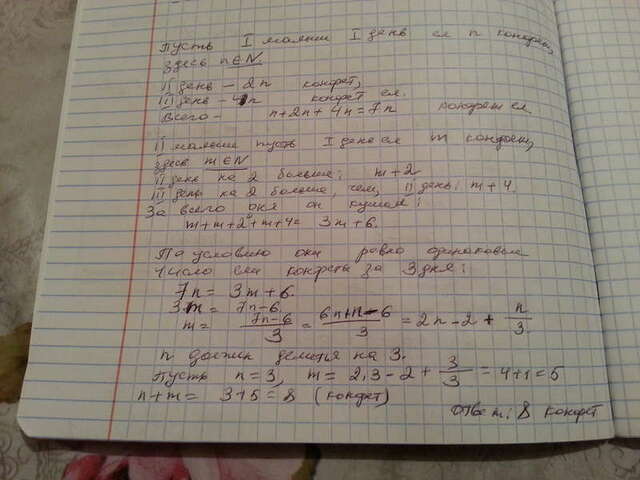 Пусть I малыш I день ел n конфет,
здесь n∈N.
II день – 2n конфет,
III день – 4n конфет ел.
Всего – n+2n+4n=7n конфет ел.
II малыш пусть I день ел m конфет,
здесь m∈N
II день на 2 больше: m+2
III день на 2 больше, чем, II день: m+4.
За всего дня он кушал:
m+m+2+m+4= 3m+6.
По условию они ровно одинаковые
число ели конфеты за 3 дня:
7n = 3m+6.
3m = 7n-6
m = (7n-6)/3 = (6n+n-6)/3 = 2n-2 + n/3.
n должен делиться на 3.
Пусть n=3, m= 2,3-2 + 3/3 = 4+1=5
n+m= 3+5=8 (конфет)
Ответ: 8 конфет